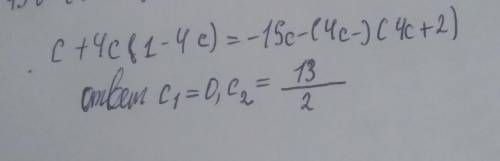 c + 4c(1 - 4c) = -15c - (4c-)(4c+2)
ответ c₁ = 0, c₂ = 13/2